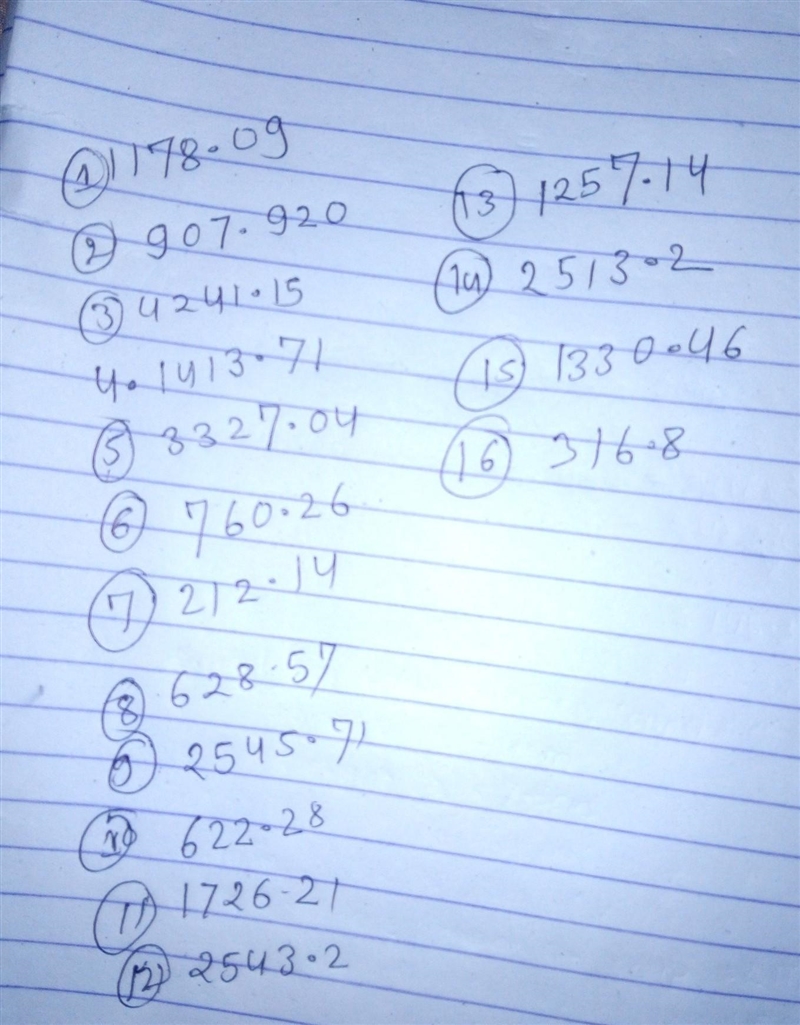 1 1178.09
2 907.920
3 4241.15
4. 1413.71
5 3327.04
6 760.26
7 212.14
8 628.57
9 2545.71
10 622.28
11 1726.21
12 2543.2
13 1257.14
14 2513.2
15 1330.46
16 316.8